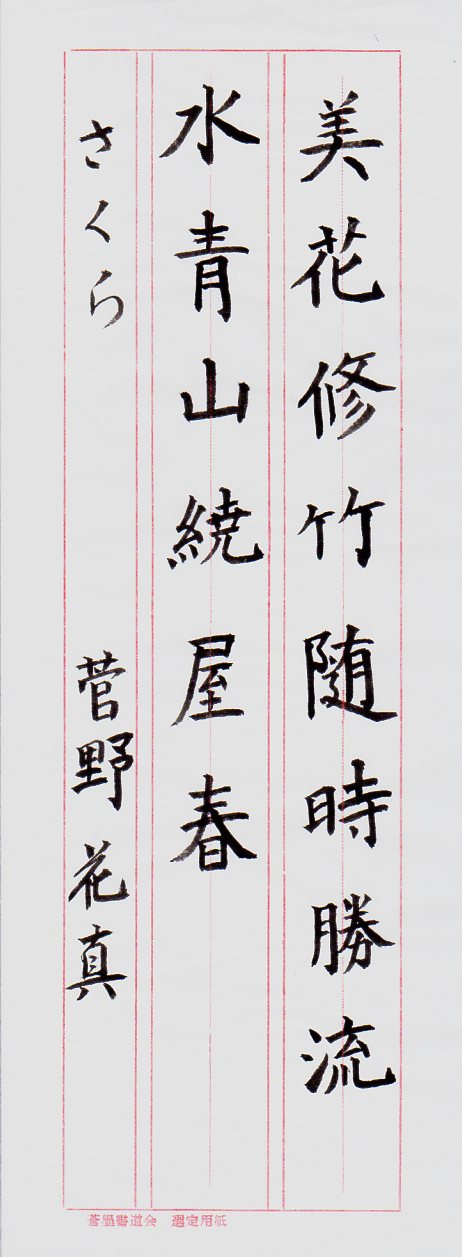 美花修竹随時勝流
水青山繞屋春
さくら 菅野花真
蒼墨書道会 選定用紙